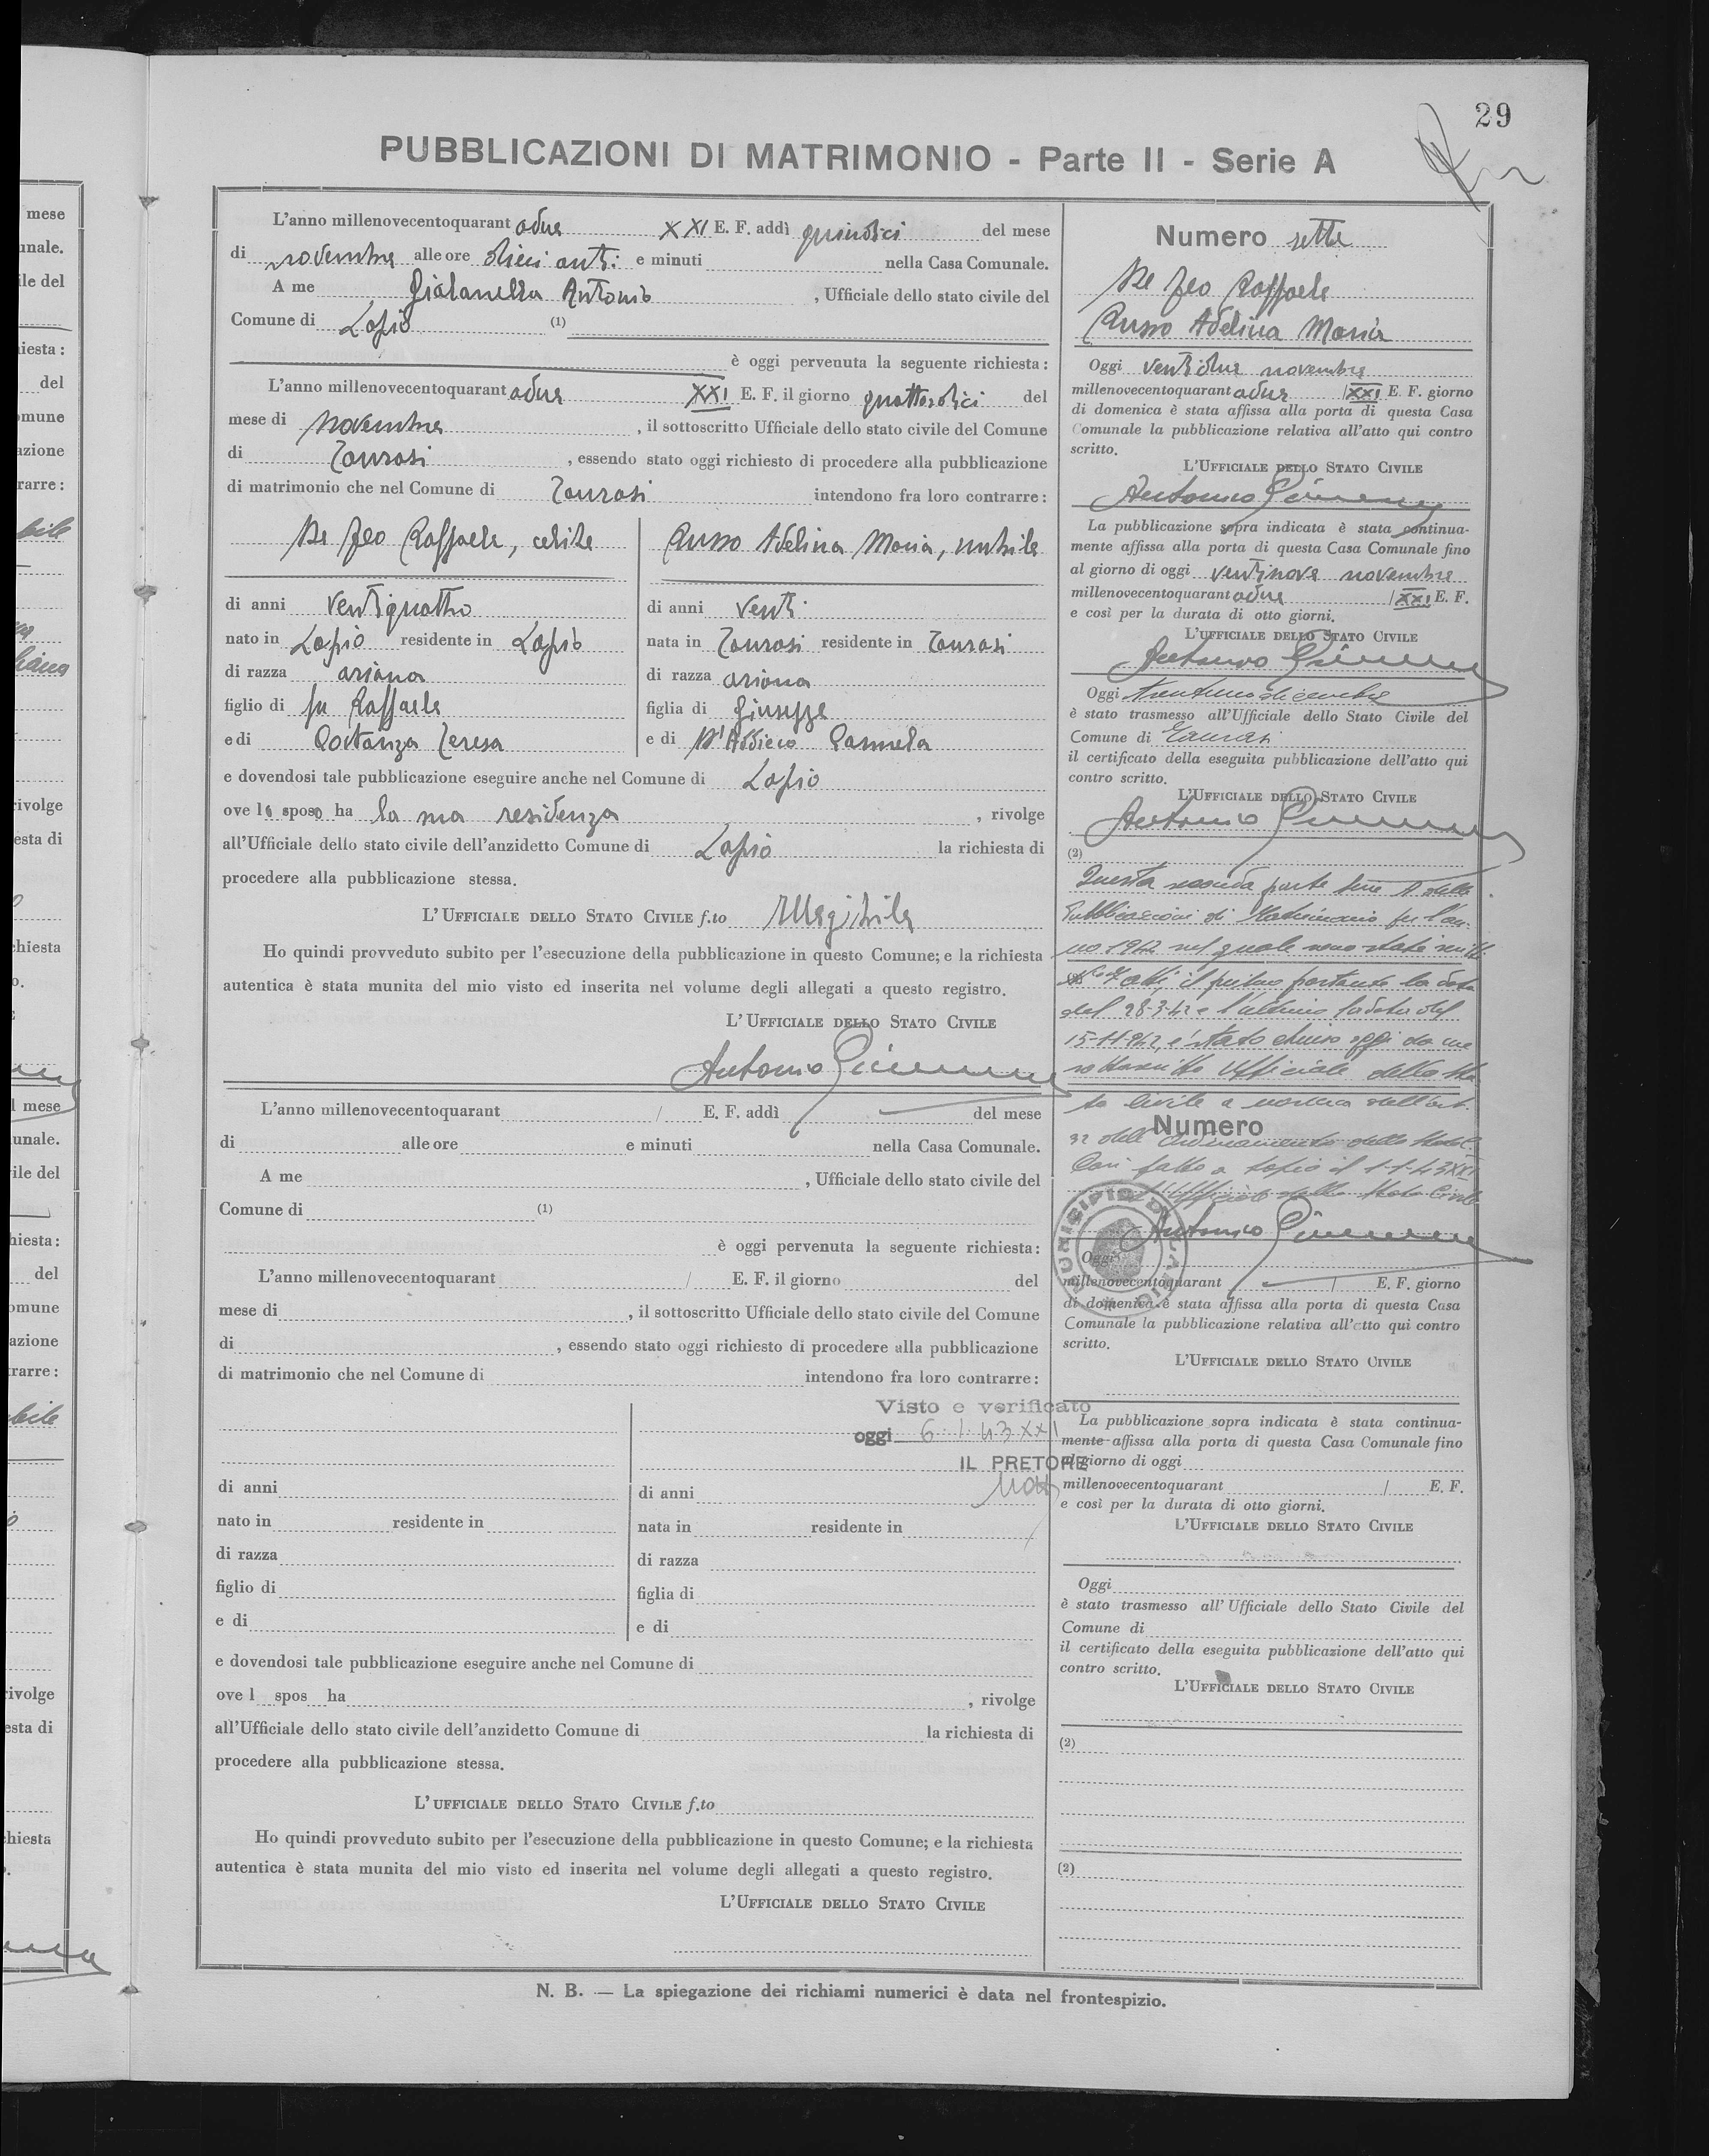 29
PUBBLICAZIONI DI MATRIMONIO - Parte II - Serie A
L'anno millenovecentoquarant adue XXI E. F. addì quindici del mese
di novembre alle ore dieci ant: e minuti nella Casa Comunale.
A me Antonio , Ufficiale dello stato civile del
Comune di Lapio (1)
è oggi pervenuta la seguente richiesta:
L'anno millenovecentoquarant adue XXI E. F. il giorno quattordici del
mese di Novembre , il sottoscritto Ufficiale dello stato civile del Comune
di Taurasi , essendo stato oggi richiesto di procedere alla pubblicazione
di matrimonio che nel Comune di Taurasi intendono fra loro contrarre:
De Feo Raffaele, celibe
di anni ventiquattro
nato in Lapio residente in Lapio
di razza ariana
figlio di fu Raffaele
e di Costanza Teresa
Russo Adelina Maria, nubile
di anni venti
nata in Taurasi residente in Taurasi
di razza ariana
figlia di Giuseppe
e di D'Addieco Carmela
e dovendosi tale pubblicazione eseguire anche nel Comune di Lapio
ove lo sposo ha la sua residenza , rivolge
all'Ufficiale dello stato civile dell'anzidetto Comune di Lapio la richiesta di
procedere alla pubblicazione stessa.
L'UFFICIALE DELLO STATO CIVILE f.to Illegibile
Ho quindi provveduto subito per l'esecuzione della pubblicazione in questo Comune; e la richiesta
autentica è stata munita del mio visto ed inserita nel volume degli allegati a questo registro.
L'UFFICIALE DELLO STATO CIVILE
Antonio
Numero sette
De Feo Raffaele
Russo Adelina Maria
Oggi ventidue novembre
millenovecentoquarant adue / XXI E. F. giorno
di domenica è stata affissa alla porta di questa Casa
Comunale la pubblicazione relativa all'atto qui contro
scritto.
L'UFFICIALE DELLO STATO CIVILE
Antonio
La pubblicazione sopra indicata è stata continua-
mente affissa alla porta di questa Casa Comunale fino
al giorno di oggi ventinove novembre
millenovecentoquarant adue / XXI E. F.
e così per la durata di otto giorni.
L'UFFICIALE DELLO STATO CIVILE
Antonio
Oggi trentuno dicembre
è stato trasmesso all'Ufficiale dello Stato Civile del
Comune di Taurasi
il certificato della eseguita pubblicazione dell'atto qui
contro scritto.
L'UFFICIALE DELLO STATO CIVILE
Antonio
(2)
Questa seconda parte serie A delle
Pubblicazioni di Matrimonio per l'an-
no 1942 nel quale sono stati scritti
N° 7 atti, il primo portante la data
del 28-3-42 e l'ultimo la data del
15-11-942, è stato chiuso oggi da me
sottoscritto Ufficiale dello Sta
to Civile a norma dell'art.
32 dell'Ordinamento dello Stato C.
Così fatto a Lapio il 1-1-43 XXI
L'Ufficiale dello Stato Civile
Antonio
MUNICIPIO DI LAPIO
L'anno millenovecentoquarant / E. F. addì del mese
di alle ore e minuti nella Casa Comunale.
A me , Ufficiale dello stato civile del
Comune di (1)
è oggi pervenuta la seguente richiesta:
L'anno millenovecentoquarant / E. F. il giorno del
mese di , il sottoscritto Ufficiale dello stato civile del Comune
di , essendo stato oggi richiesto di procedere alla pubblicazione
di matrimonio che nel Comune di intendono fra loro contrarre:
Visto e verificato
oggi 6.1.43 XXI
IL PRETORE
di anni
nato in residente in
di razza
figlio di
e di
di anni
nata in residente in
di razza
figlia di
e di
e dovendosi tale pubblicazione eseguire anche nel Comune di
ove l spos ha , rivolge
all'Ufficiale dello stato civile dell'anzidetto Comune di la richiesta di
procedere alla pubblicazione stessa.
L'UFFICIALE DELLO STATO CIVILE f.to
Ho quindi provveduto subito per l'esecuzione della pubblicazione in questo Comune; e la richiesta
autentica è stata munita del mio visto ed inserita nel volume degli allegati a questo registro.
L'UFFICIALE DELLO STATO CIVILE
Numero
Oggi
millenovecentoquarant / E. F. giorno
di domenica è stata affissa alla porta di questa Casa
Comunale la pubblicazione relativa all'atto qui contro
scritto.
L'UFFICIALE DELLO STATO CIVILE
La pubblicazione sopra indicata è stata continua-
mente affissa alla porta di questa Casa Comunale fino
al giorno di oggi
millenovecentoquarant / E. F.
e così per la durata di otto giorni.
L'UFFICIALE DELLO STATO CIVILE
Oggi
è stato trasmesso all'Ufficiale dello Stato Civile del
Comune di
il certificato della eseguita pubblicazione dell'atto qui
contro scritto.
L'UFFICIALE DELLO STATO CIVILE
(2)
(2)
N. B. — La spiegazione dei richiami numerici è data nel frontespizio.